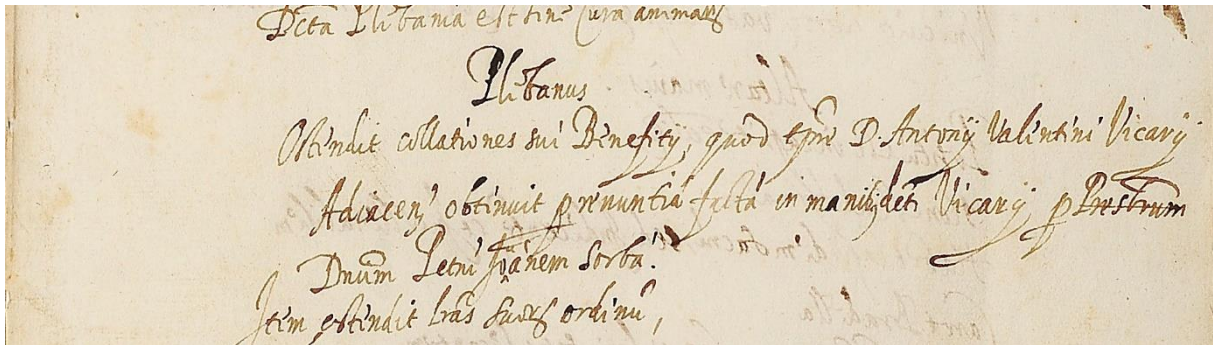 Dcta Plibania est sine Cura animarȝ
Plibanus
Ostendit collationes sui Benefitÿ, quod tpre D. Antonÿ Valentini Vicarÿ
Adiacenȝ obtinuit p renuntiã factã in manibȝ dcti Vicarÿ p Presbrum
Dnum Petrũ Joãnem Sorba.
Item ostendit lras suorȝ ordinũ,